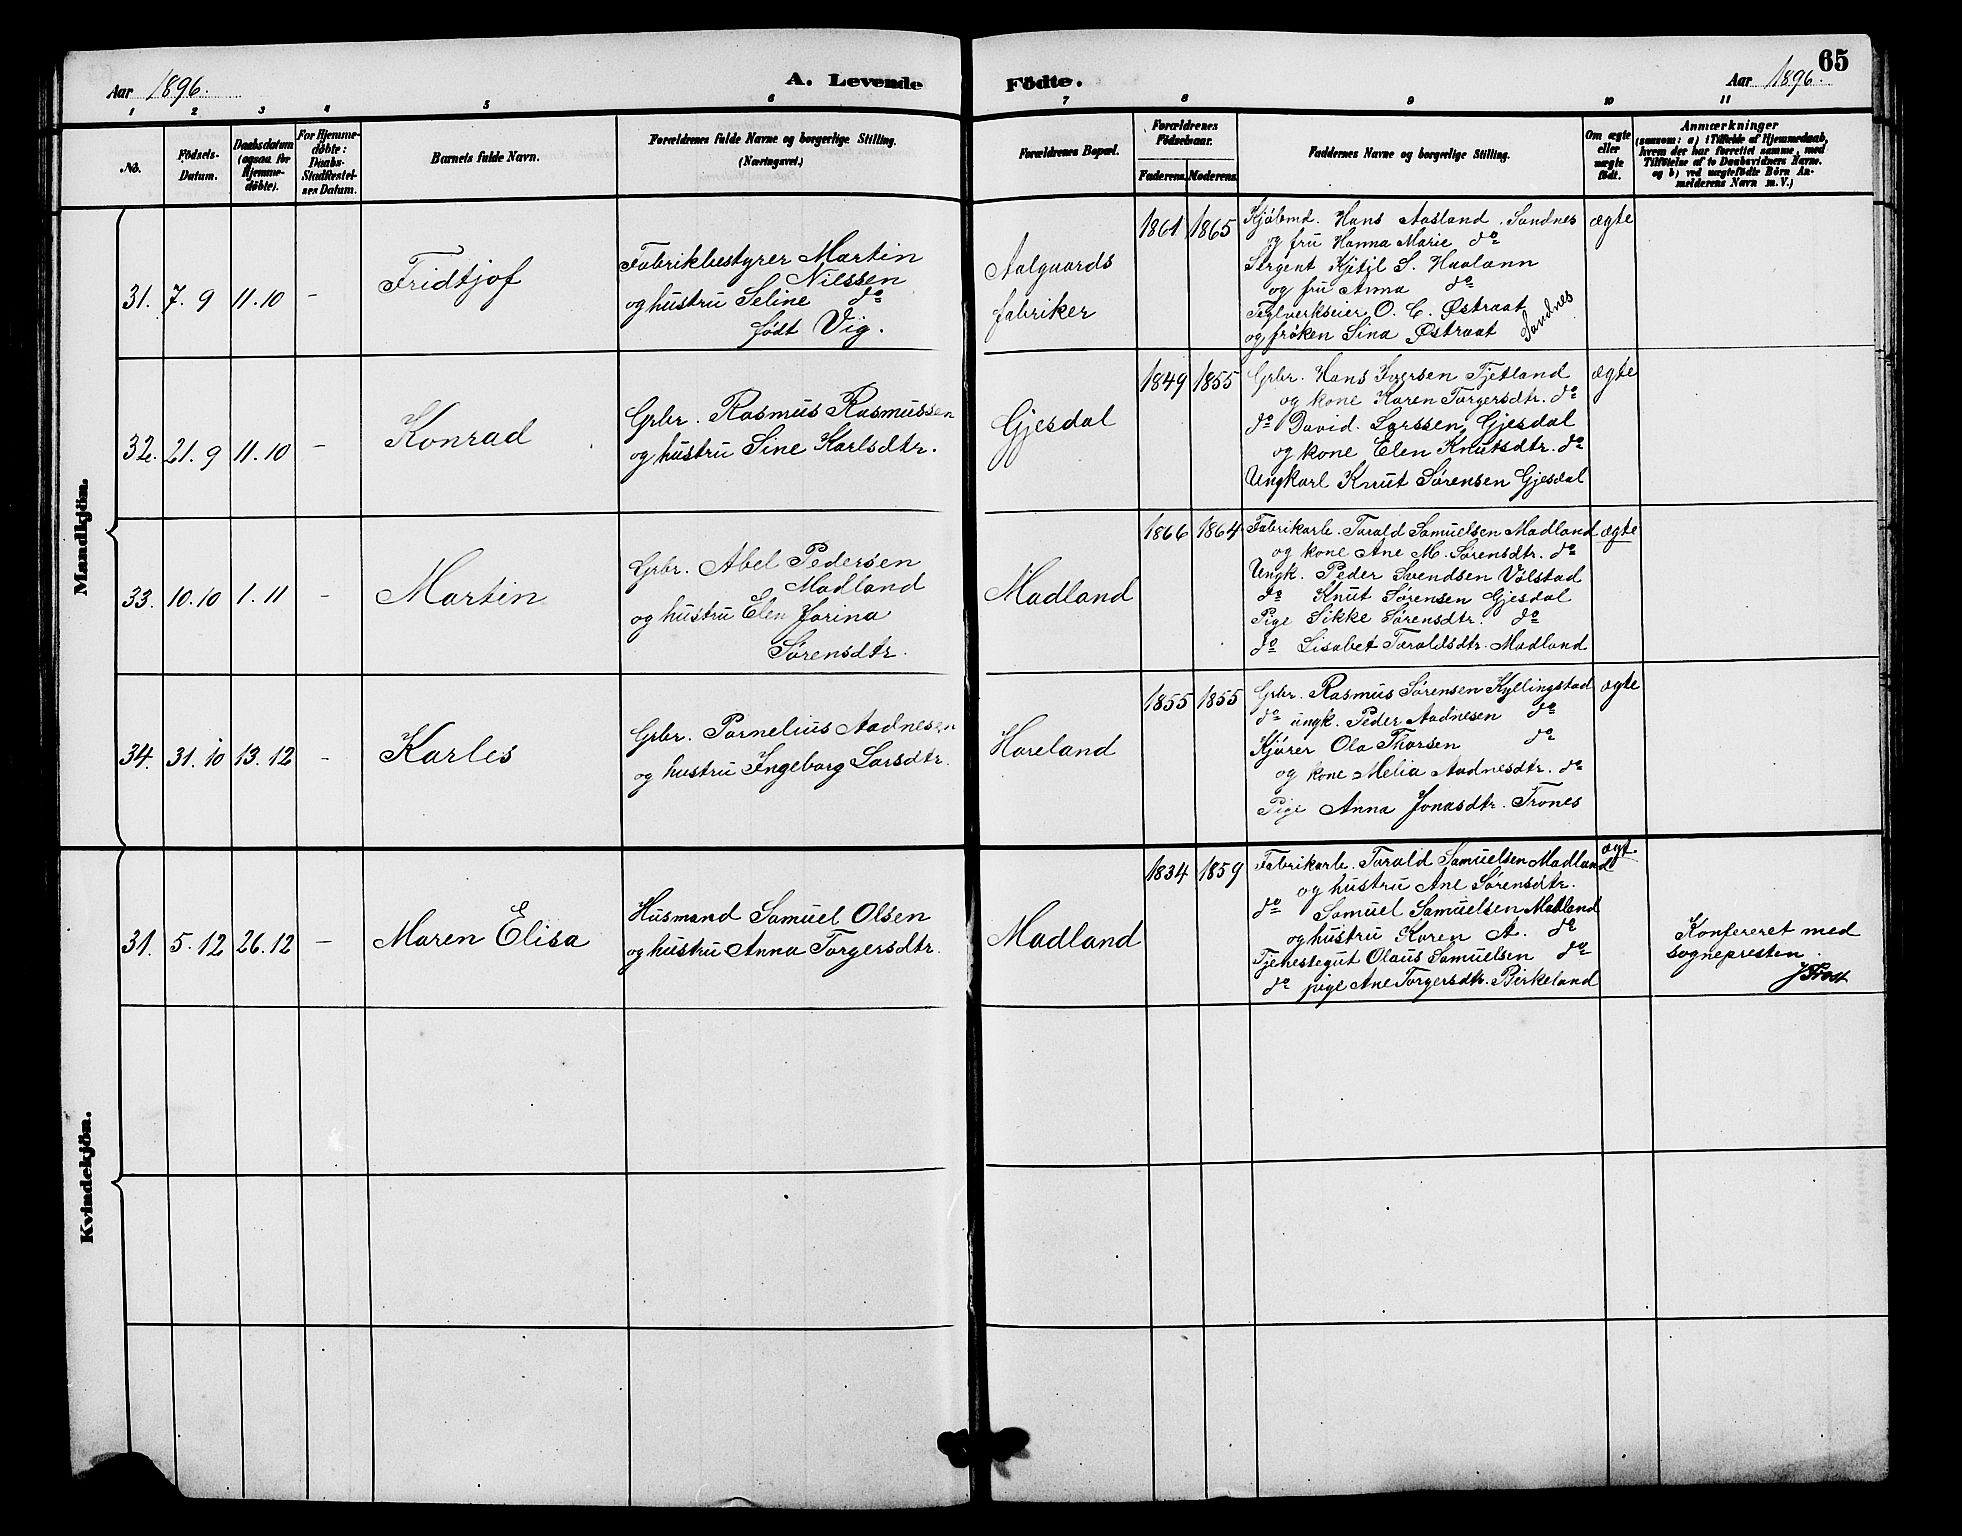 65
Aar 1896. A. Levende Födte. Aar 1896.
1 2 3 4 5 6 7 8 9 10 11
No.
Födsels-
Datum.
Daabsdatum
(ogsaa for
Hjemme-
döbte).
For Hjemme-
döbte:
Daabs-
Stadfæstel-
ses Datum.
Barnets fulde Navn.
Forældrenes fulde Navne og borgerlige Stilling.
(Næringsvei.)
Forældrenes Bopæl.
Forældrenes
Födselsaar.
Faderens. Moderens.
Faddernes Navne og borgerlige Stilling.
Om ægte
eller
uægte
födt.
Anmærkninger
(saasom: a) i Tilfælde af Hjemmedaab,
hvem der har forrettet samme, med
Tilföielse af to Daabsvidners Navne.
og b) ved uægtefödte Börn An-
melderens Navn m. V.)
Mandkjön.
31. 7. 9 11. 10 –
Fridtjof
Fabrikbestyrer Martin
Nilssen
og hustru Seline do
født Vig.
Aalgaards
fabriker
1861 1865
Kjøbmd. Hans Aasland, Sandnes
og fru Hanna Marie do
Sergent Kjetjl S. Haaland
og fru Anna do
Teglverkseier O. C. Østraat
og frøken Sina Østraat
Sandnes
ægte
32. 21. 9 11. 10 –
Konrad
Grbr. Rasmus Rasmussen
og hustru Sine Karlsdtr.
Gjesdal
1849 1855
Grbr. Hans Iversen Tjetland
og kone Karen Torgersdtr. do
do David Larssen, Gjesdal
og kone Elen Knutsdtr. do
Ungkarl Knut Sørensen Gjesdal
ægte
33. 10. 10 1. 11 –
Martin
Grbr. Abel Pedersen
Madland
og hustru Elen Jorina
Sørensdtr.
Madland
1866 1864
Fabrikarb. Tarald Samuelsen Madland
og kone Ane M. Sørensdtr. do
Ungk. Peder Svendsen Vølstad
do Knut Sørensen Gjesdal
Pige Sikke Sørensdtr. do
do Lisabet Taraldsdtr. Madland
ægte
34. 31. 10 13. 12 –
Karles
Grbr. Pornelius Aadnesen
og hustru Ingeborg Larsdtr.
Horeland
1855 1855
Grbr. Rasmus Sørensen Kyllingstad
do ungk. Peder Aadnesen do
Kjører Ola Thorsen do
og kone Melia Aadnesdtr. do
Pige Anna Jonasdtr. Trones
ægte
Kvindekjön.
31. 5. 12 26. 12 –
Maren Elisa
Husmand Samuel Olsen
og hustru Anna Torgersdtr.
Madland
1834 1859
Fabrikarb. Tarald Samuelsen Madland
og hustru Ane Sørensdtr.
do Samuel Samuelsen Madland
og hustru Karen A. do
Tjenestegut Olaus Samuelsen do
do pige Ane Torgersdtr. Birkeland
ægt
Konfereret med
sognepresten.